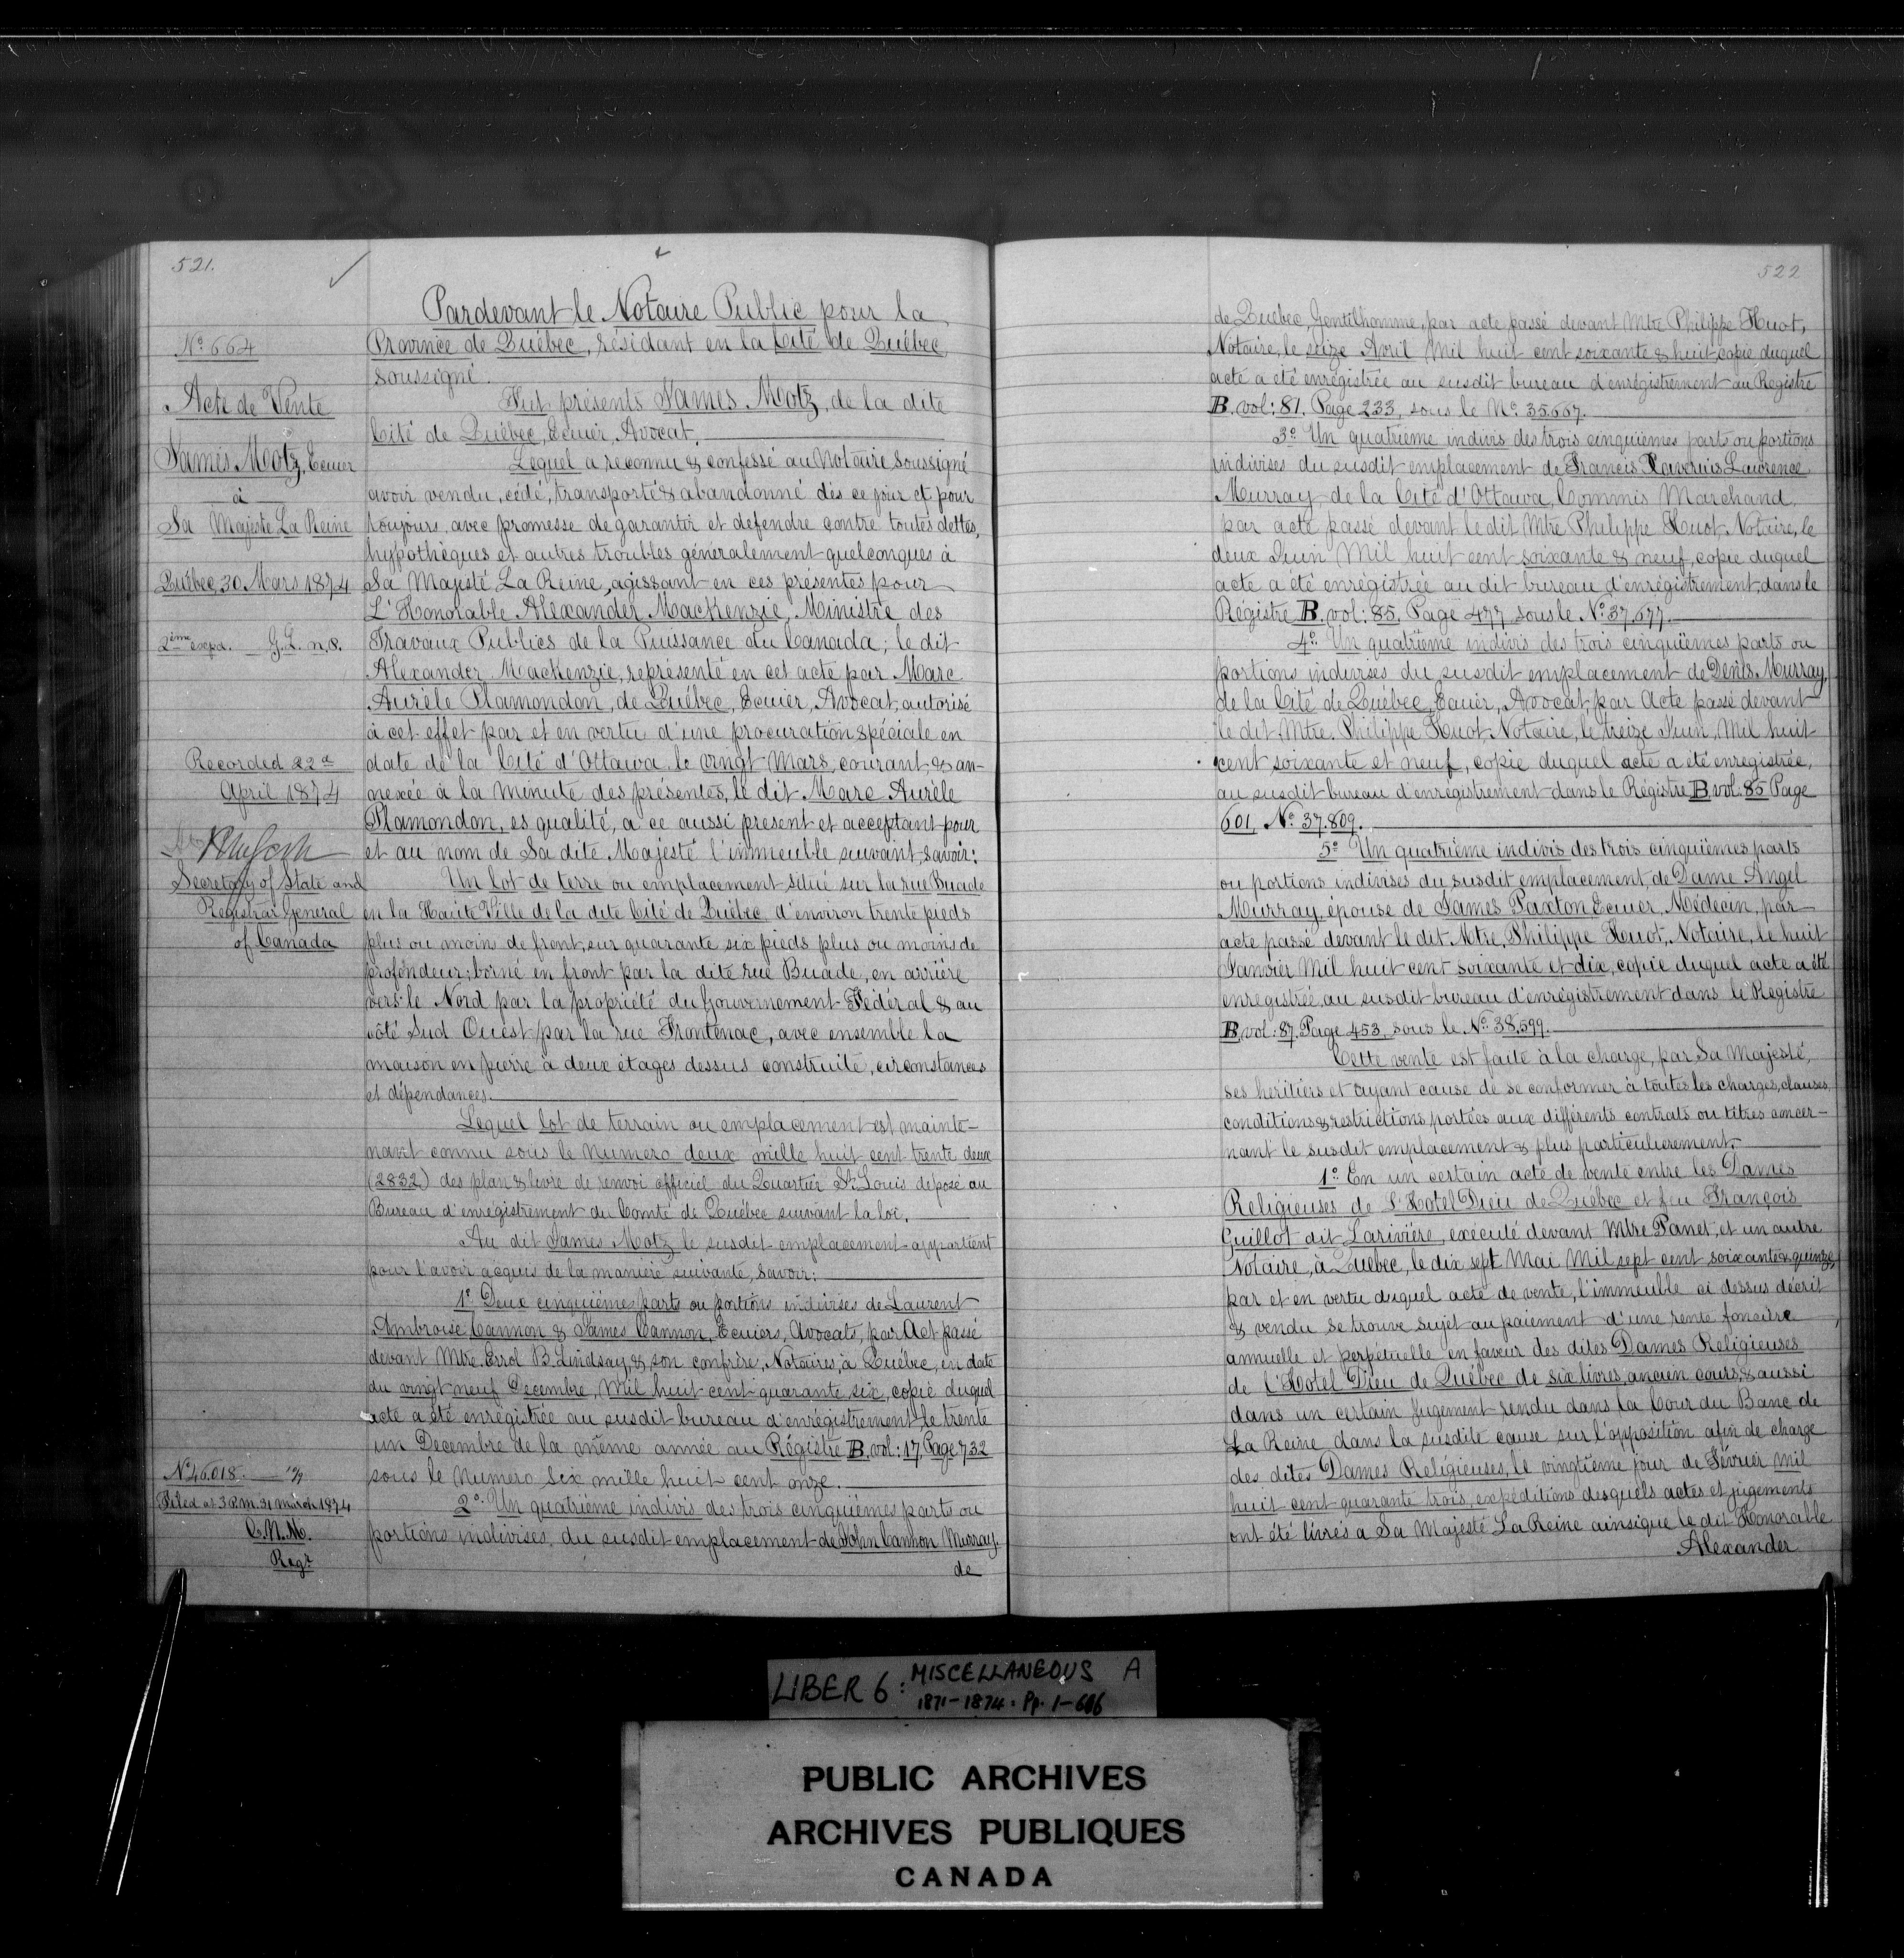 521.
Pardevant le Notaire Public pour la
Province de Québec, résidant en la Cité de Québec,
soussigné.
Fut présents James Motz, de la dite
Cité de Québec, Ecuier, Avocat.
Lequel a reconnu & confessé au Notaire soussigné
avoir vendu, cédé, transporté & abandonné dès ce jour et pour
toujours, avec promesse de garantir et defendre contre toutes dettes,
hypothèques et autres troubles généralement quelconques à
Sa Majesté La Reine, agissant en ces présentes pour
L'Honorable Alexander MacKenzie, Ministre des
Travaux Publics de la Puissance du Canada; le dit
Alexander MacKenzie, représenté en cet acte par Marc
Aurèle Plamondon, de Québec, Ecuier, Avocat, autorisé
à cet effet par et en vertu d'une procuration spéciale en
date de la Cité d'Ottawa le vingt Mars, courant, & an-
nexée à la minute des présentes, le dit Marc Aurèle
Plamondon, es qualité, a ce aussi present et acceptant pour
et au nom de Sa dite Majesté l'immeuble suivant, savoir:
Un lot de terre ou emplacement situé sur la rue Buade
en la Haute Ville de la dite Cité de Québec, d'environ trente pieds
plus ou moins de front, sur quarante six pieds plus ou moins de
profondeur; borné en front par la dite rue Buade, en arrière
vers le Nord par la propriété du Gouvernement Fédéral & au
côté Sud Ouest par la rue Frontenac, avec ensemble la
maison en pierre à deux étages dessus construite, circonstances
et dépendances.
Lequel lot de terrain ou emplacement est mainte-
nant connu sous le numero deux mille huit cent trente deux
(2832) des plan & livre de renvoi officiel du Quartier St. Louis déposé au
Bureau d'enregistrement du Comté de Québec suivant la loi.
Au dit James Motz le susdit emplacement appartient
pour l'avoir acquis de la manière suivante, savoir:
1º Deux cinquièmes parts ou portions indivises de Laurent
Ambroise Cannon & James Cannon, Ecuiers, Avocats, par Act passé
devant Mtre. Errol B. Lindsay, & son confrère, Notaires, à Québec, en date
du vingt neuf Decembre, Mil huit cent quarante six, copie duquel
acte a été enrégistrée au susdit bureau d'enrégistrement, le trente
un Decembre de la même année au Régistre B. vol: 17, Page 732
sous le Numero Six mille huit cent onze.
2º Un quatrième indivis des trois cinquièmes parts ou
portions indivises, du susdit emplacement de John Cannon Murray.
de
Nº 664
Acte de Vente
James Motz, Ecuier
à
Sa Majesté La Reine
Québec, 30 Mars 1874
2ème expd. G.L. n.p.
Recorded 22d
April 1874
Secretary of State and
Registrar General
of Canada
Nº 46,018.
Filed at 3 P.m. 31 March 1874
C.N.M.
Regr
522
de Québec, Gentilhomme, par acte passé devant Mtre Philippe Huot,
Notaire, le seize Avril Mil huit cent soixante & huit, copie duquel
acte a été enrégistrée au susdit bureau d'enrégistrement au Registre
B. vol: 81. Page 233, sous le Nº 35,667.
3º Un quatrième indivis des trois cinquièmes parts ou portions
indivises du susdit emplacement de Francis Xaverius Lawrence
Murray, de la Cité d'Ottawa, Commis Marchand,
par acte passé devant le dit Mtre. Philippe Huot, Notaire, le
deux Juin Mil huit cent soixante & neuf, copie duquel
acte a été enrégistrée au dit bureau d'enrégistrement, dans le
Régistre B. vol: 85. Page 477 sous le Nº 37,677.
4º Un quatrième indivis des trois cinquièmes parts ou
portions indivises du susdit emplacement de Denis Murray,
de la Cité de Québec, Ecuier, Avocat, par Acte passé devant
le dit Mtre. Philippe Huot, Notaire, le treize Juin, Mil huit
cent soixante et neuf, copie duquel acte a été enregistrée,
au susdit bureau d'enregistrement dans le Régistre B vol. 85 Page
601, Nº 37.809.
5º Un quatrième indivis des trois cinquièmes parts
ou portions indivises du susdit emplacement, de Dame Angel
Murray, épouse de James Paxton Ecuier, Médecin, par
acte passé devant le dit Mtre. Philippe Huot, Notaire, le huit
Janvier Mil huit cent soixante et dix, copie duquel acte a été
enregistrée, au susdit bureau d'enrégistrement dans le Registre
B. vol: 87. Page 453, sous le Nº 38,599.
Cette vente est faite à la charge, par Sa Majesté,
ses heritiers et ayant cause de se conformer à toutes les charges, clauses,
conditions & restrictions portées aux différents contrats ou titres concer-
nant le susdit emplacement & plus particulièrement.
1º En un certain acte de vente entre les Dames
Religieuses de l'Hotel Dieu de Québec et feu François
Guillot dit Larivière, exécuté devant Mtre Panet, et un autre
Notaire, à Québec, le dix sept Mai Mil sept cent soixante & quinze,
par et en vertu duquel acte de vente, l'immeuble ci dessus décrit
& vendu se trouve sujet au paiement d'une rente foncière
annuelle et perpétuelle en faveur des dites Dames Religieuses
de l'Hotel Dieu de Québec de six livres, ancien cours, & aussi
dans un certain Jugement rendu dans la Cour du Banc de
La Reine dans la susdite cause sur l'opposition afin de charge
des dites Dames Religieuses, le vingtième jour de Février mil
huit cent quarante trois, expéditions desquels actes et jugements
ont été livrés a Sa Majesté La Reine ainsi que le dit Honorable
Alexander
LIBER 6: MISCELLANEOUS A
1871-1874. Pp. 1-606
PUBLIC ARCHIVES
ARCHIVES PUBLIQUES
CANADA